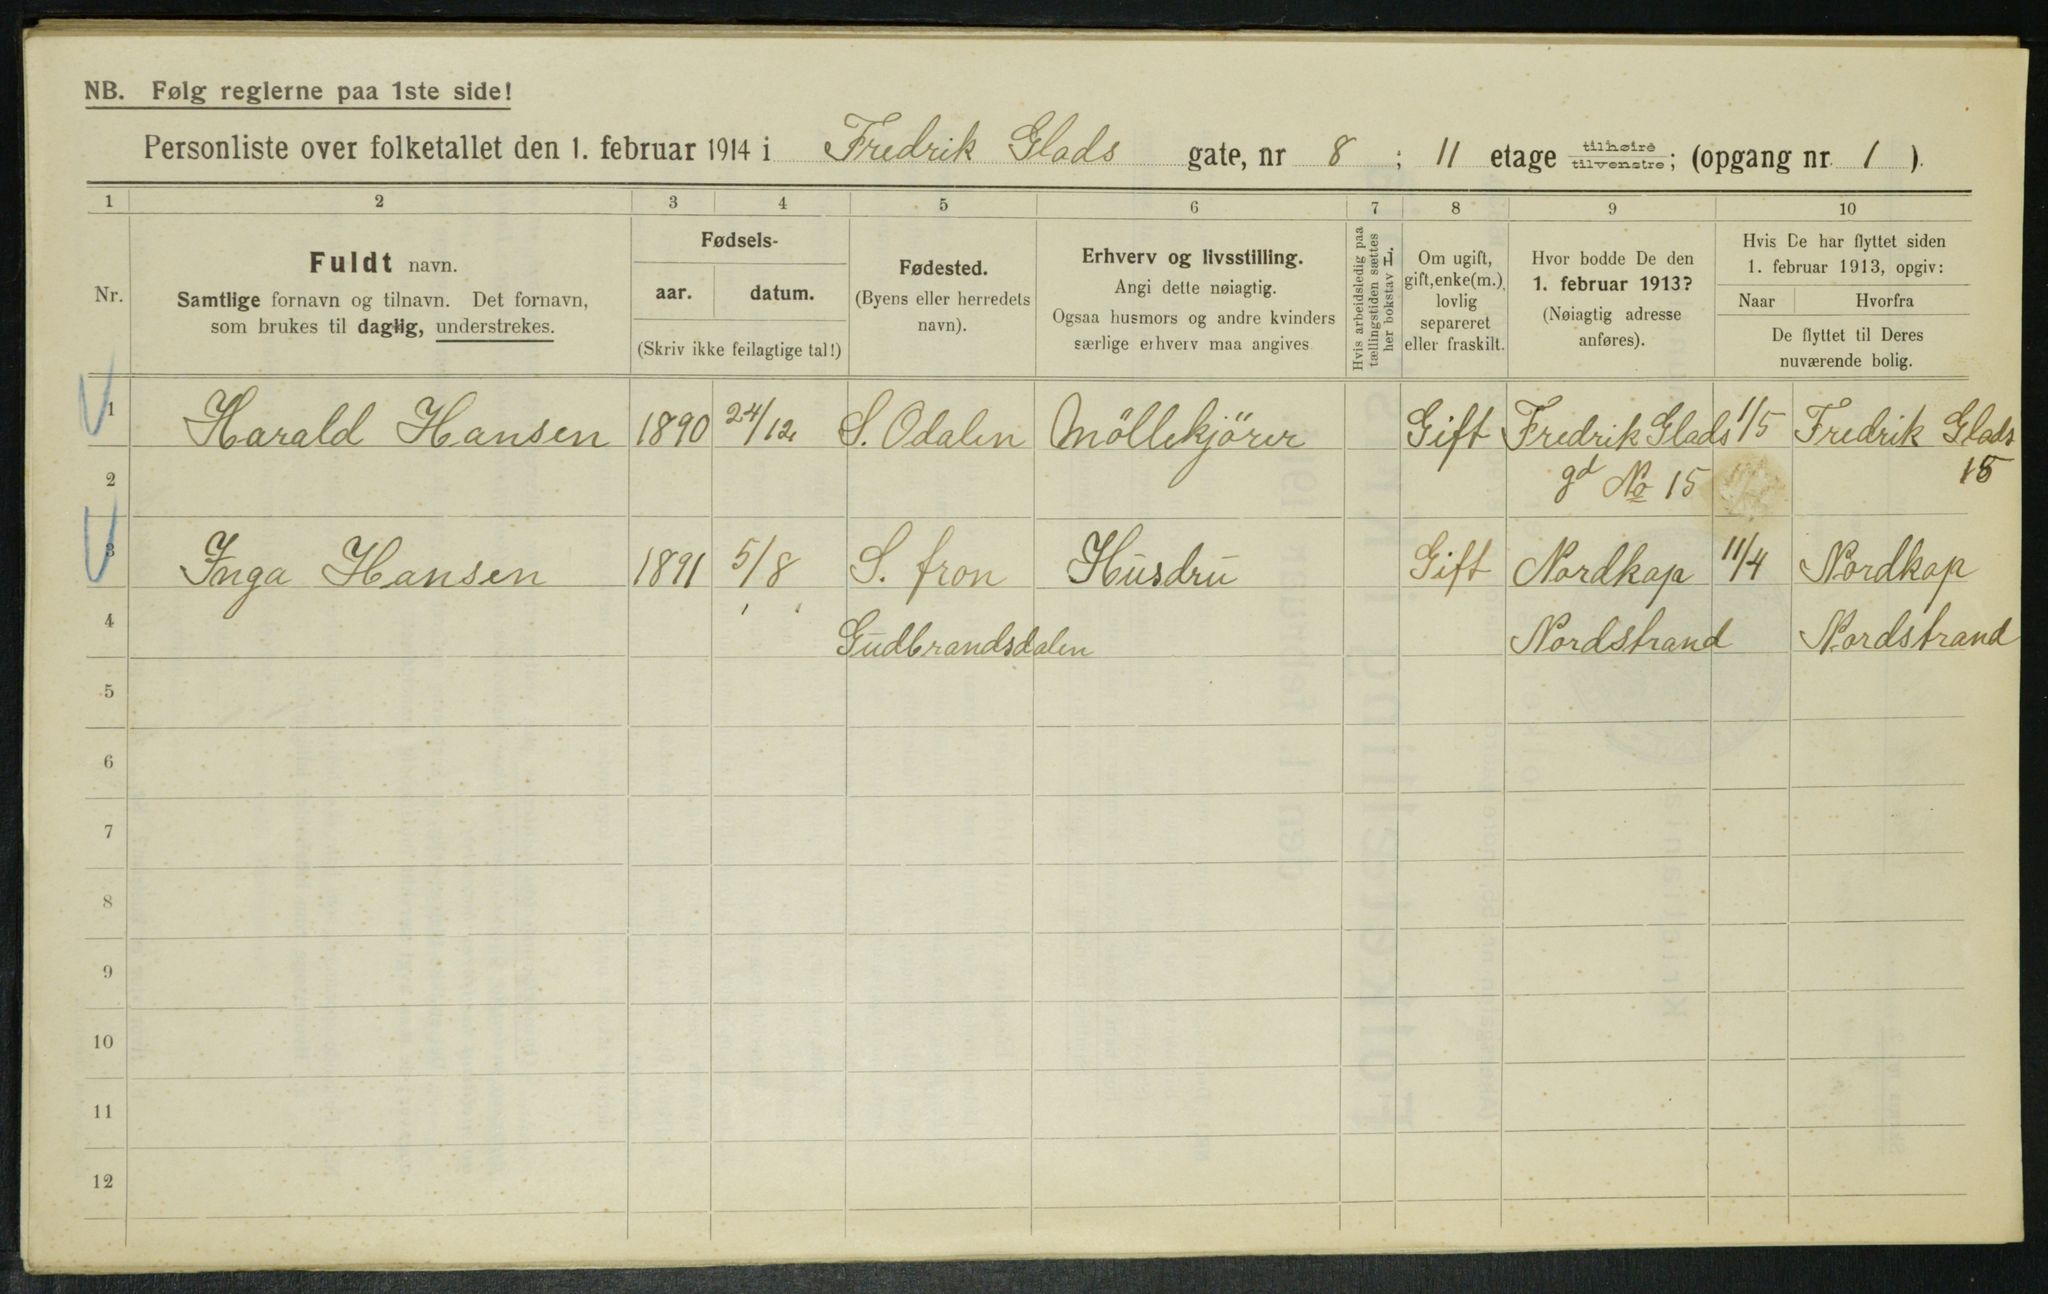 NB. Følg reglerne paa 1ste side!
Personliste over folketallet den 1. februar 1914 i Fredrik Glads gate, nr 8 ; 11 etage tilhøire tilvenstre; (opgang nr 1 ).
1 2 3 4 5 6 7 8 9 10
Nr.
Fuldt navn.
Samtlige fornavn og tilnavn. Det fornavn,
som brukes til daglig, understrekes.
Fødsels-
aar. datum.
(Skriv ikke feilagtige tal!)
Fødested.
(Byens eller herredets
navn).
Erhverv og livsstilling.
Angi dette nøiagtig.
Ogsaa husmors og andre kvinders
særlige erhverv maa angives
Hvis arbeidsledig paa
tællingstiden sættes
her bokstav L.
Om ugift,
gift, enke(m.),
lovlig
separeret
eller fraskilt.
Hvor bodde De den
1. februar 1913?
(Nøiagtig adresse
anføres).
Hvis De har flyttet siden
1. februar 1913, opgiv:
Naar Hvorfra
De flyttet til Deres
nuværende bolig.
1 Harald Hansen 1890 24/12 S. Odalen Möllekjörer Gift Fredrik Glads 1/5 Fredrik Glads
2 gd No 15 15
3 Inga Hansen 1891 5/8 S. fron Husdru Gift Nordkap 11/4 Nordkap
4 Gudbrandsdalen Nordstrand Nordstrand
5
6
7
8
9
10
11
12